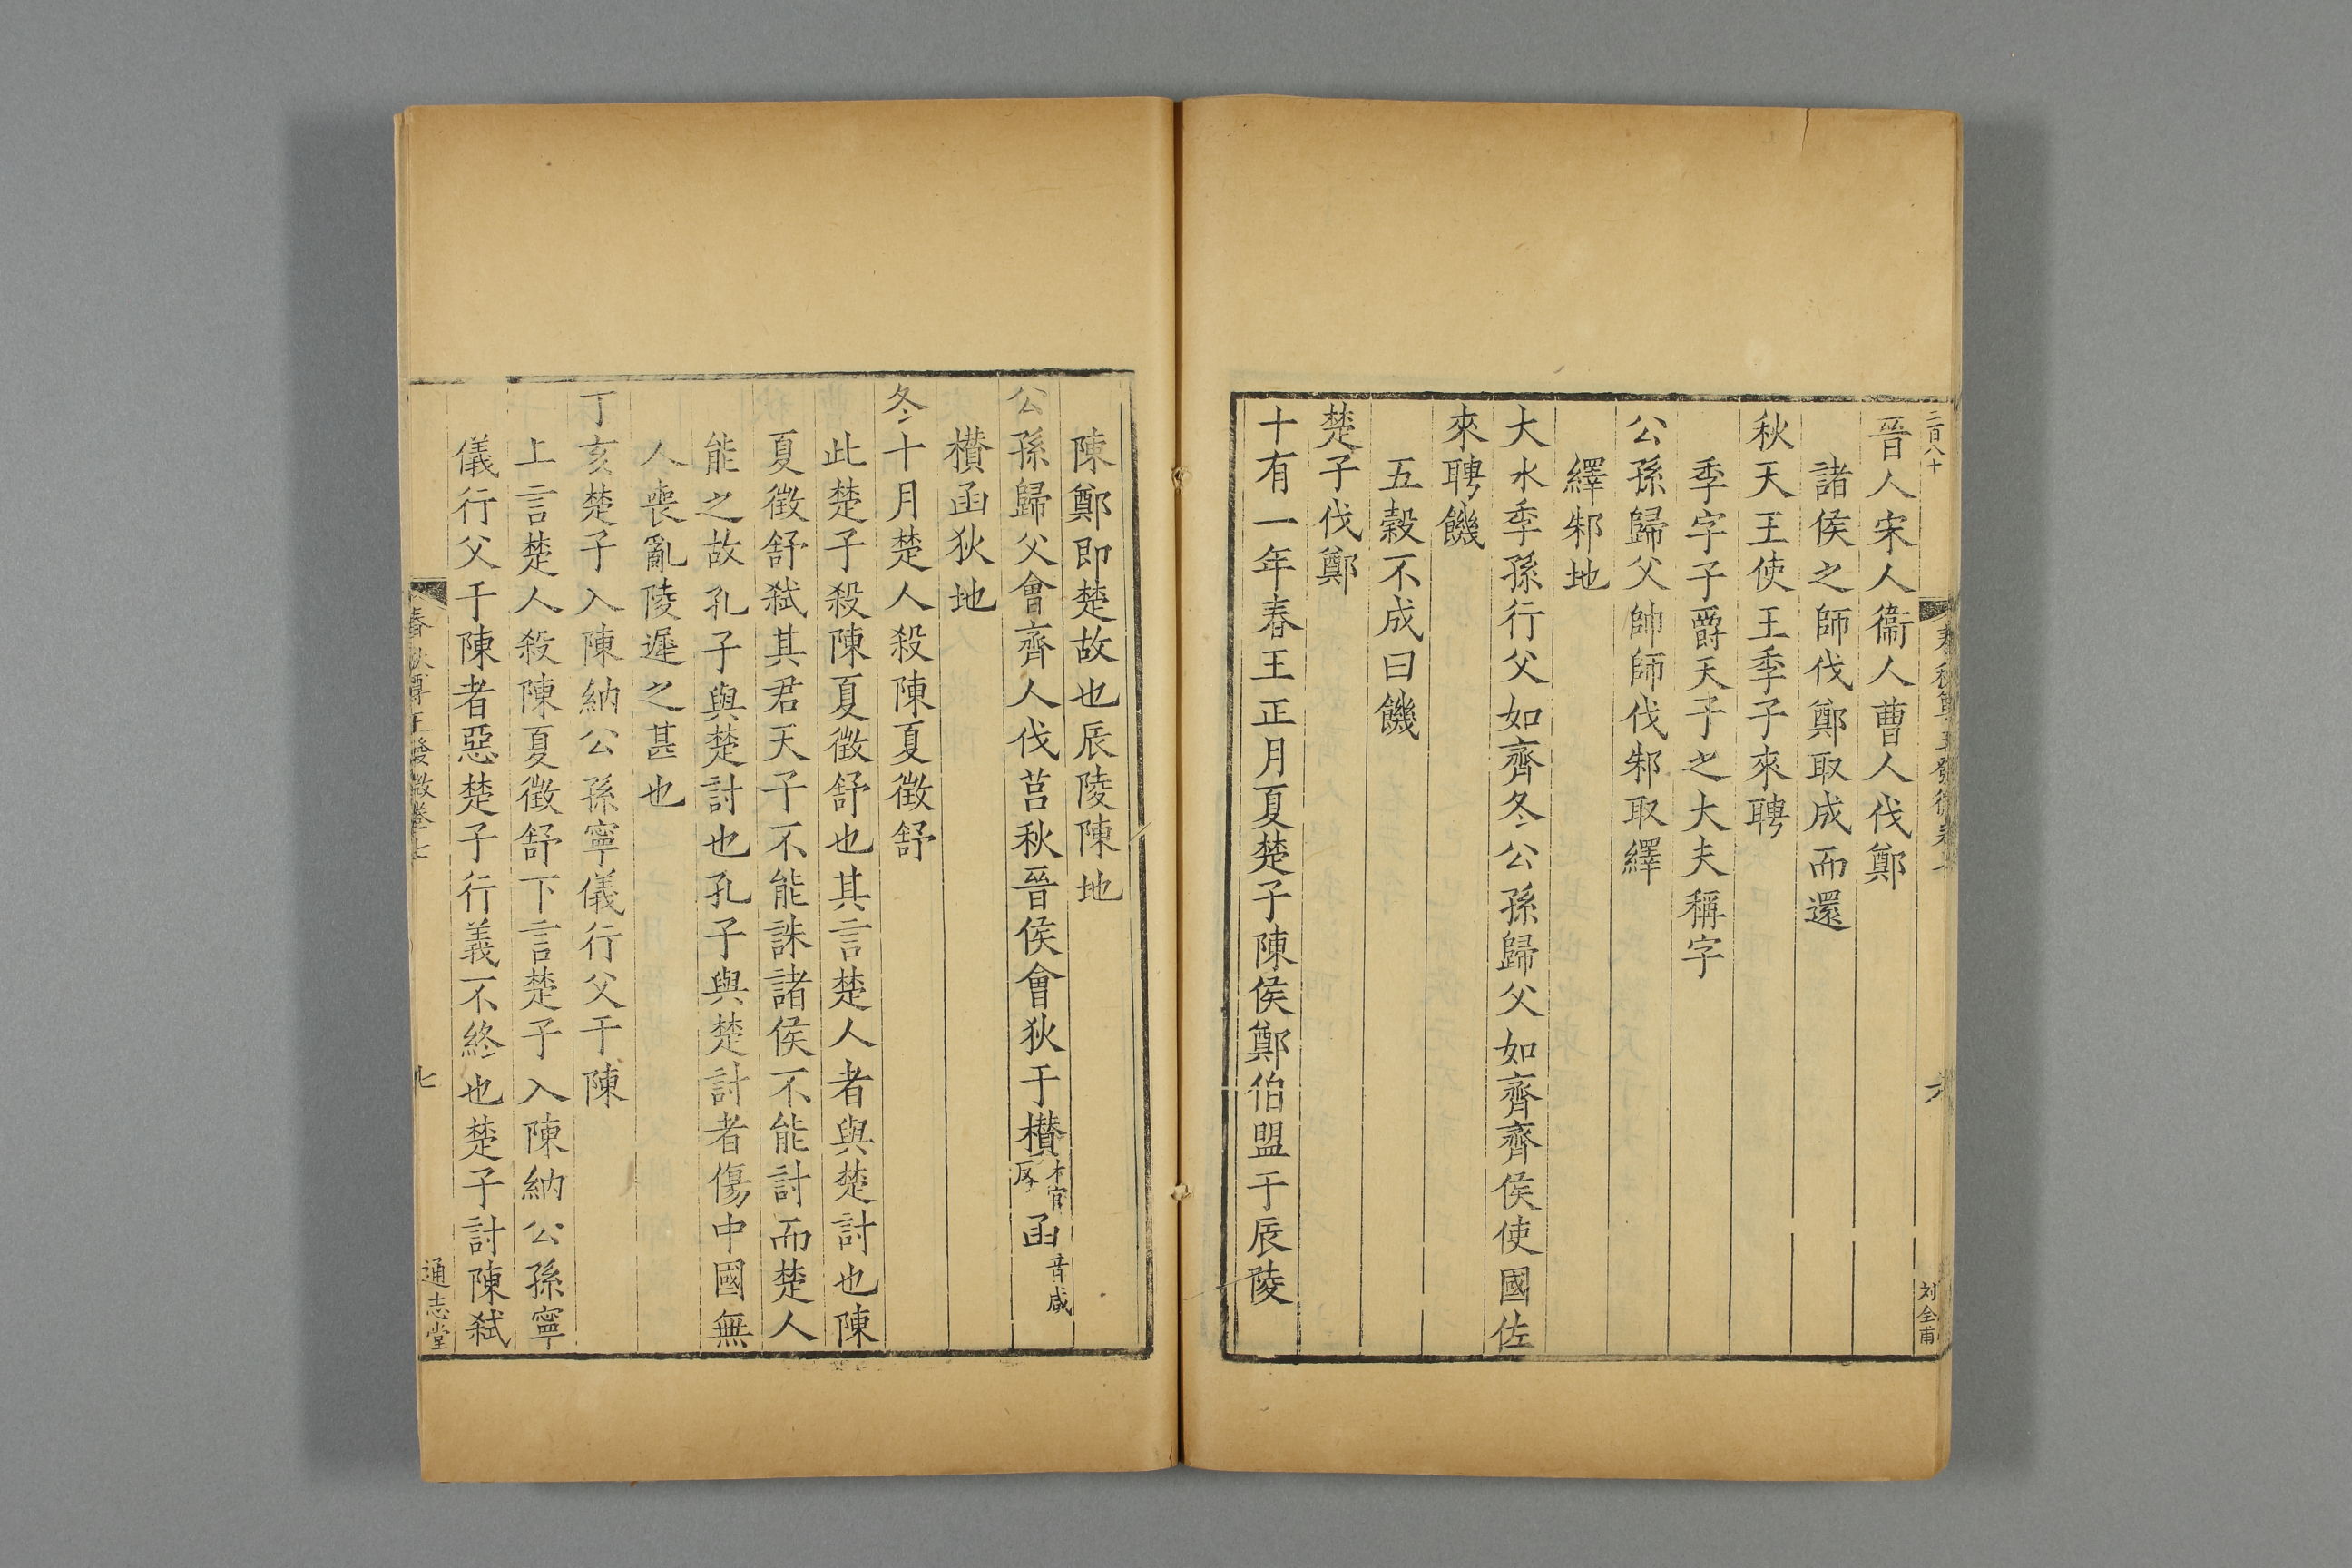 二百八十
春秋尊王發微卷七
六
刘全甫
晉人宋人衞人曹人伐鄭
諸侯之師伐鄭取成而還
秋天王使王季子來聘
季字子爵天子之大夫稱字
公孫歸父帥師伐邾取繹
繹邾地
大水季孫行父如齊冬公孫歸父如齊齊侯使國佐
來聘饑
五穀不成曰饑
楚子伐鄭
十有一年春王正月夏楚子陳侯鄭伯盟于辰陵
陳鄭即楚故也辰陵陳地
公孫歸父會齊人伐莒秋晉侯會狄于欑才官反函音咸
欑函狄地
冬十月楚人殺陳夏徵舒
此楚子殺陳夏徵舒也其言楚人者與楚討也陳
夏徵舒弑其君天子不能誅諸侯不能討而楚人
能之故孔子與楚討也孔子與楚討者傷中國無
人喪亂陵遲之甚也
丁亥楚子入陳納公孫寧儀行父于陳
上言楚人殺陳夏徵舒下言楚子入陳納公孫寧
儀行父于陳者惡楚子行義不終也楚子討陳弑
春秋尊王發微卷七
七
通志堂